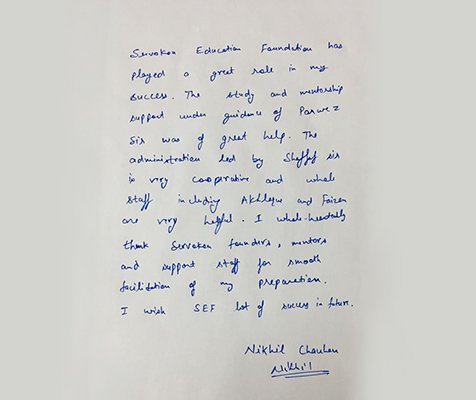 Servokon Education Foundation has
played a great role in my
success. The study and mentorship
support under guidance of Parwez
Sir was of great help. The
administration led by sir
is very cooperative and whole
staff including and Faizan
are very helpful. I whole-heartedly
thank Servokon founders, mentors
and support staff for smooth
facilitation of my preparation.
I wish SEF lot of success in future.
Nikhil Chauhan
Nikhil